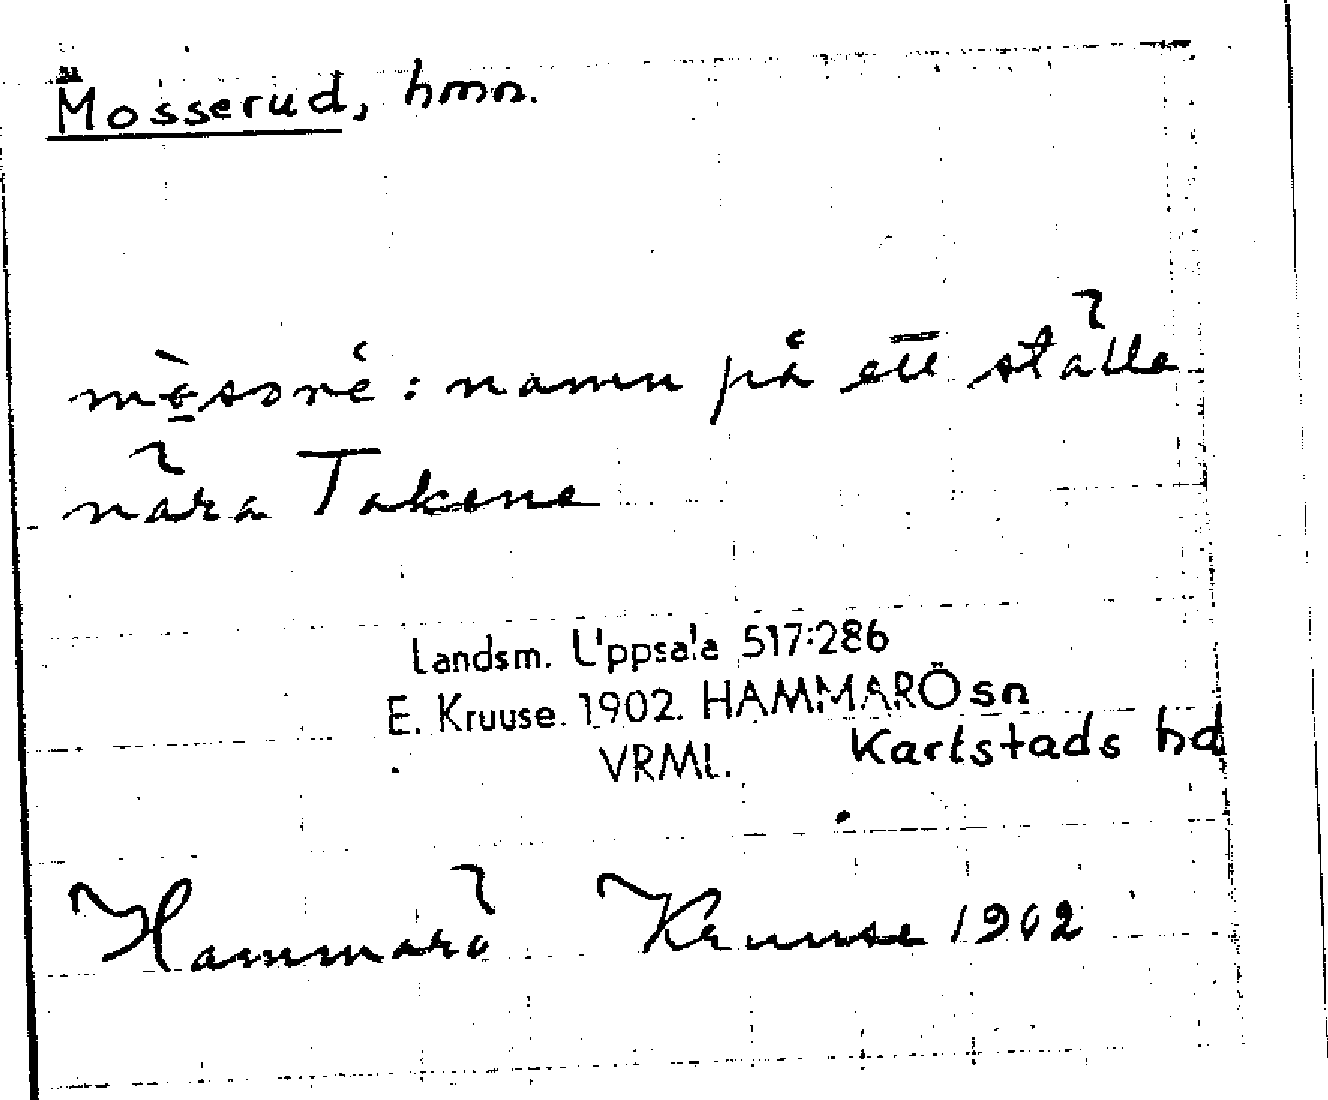 Mosserud, hmn.
mòsoré: namn på ett ställe
nära Takene
Landsm. Uppsala 517:286
E. Kruuse. 1902. HAMMARÖ sn
VRML. Karlstads hd
Hammarö Kruuse 1902